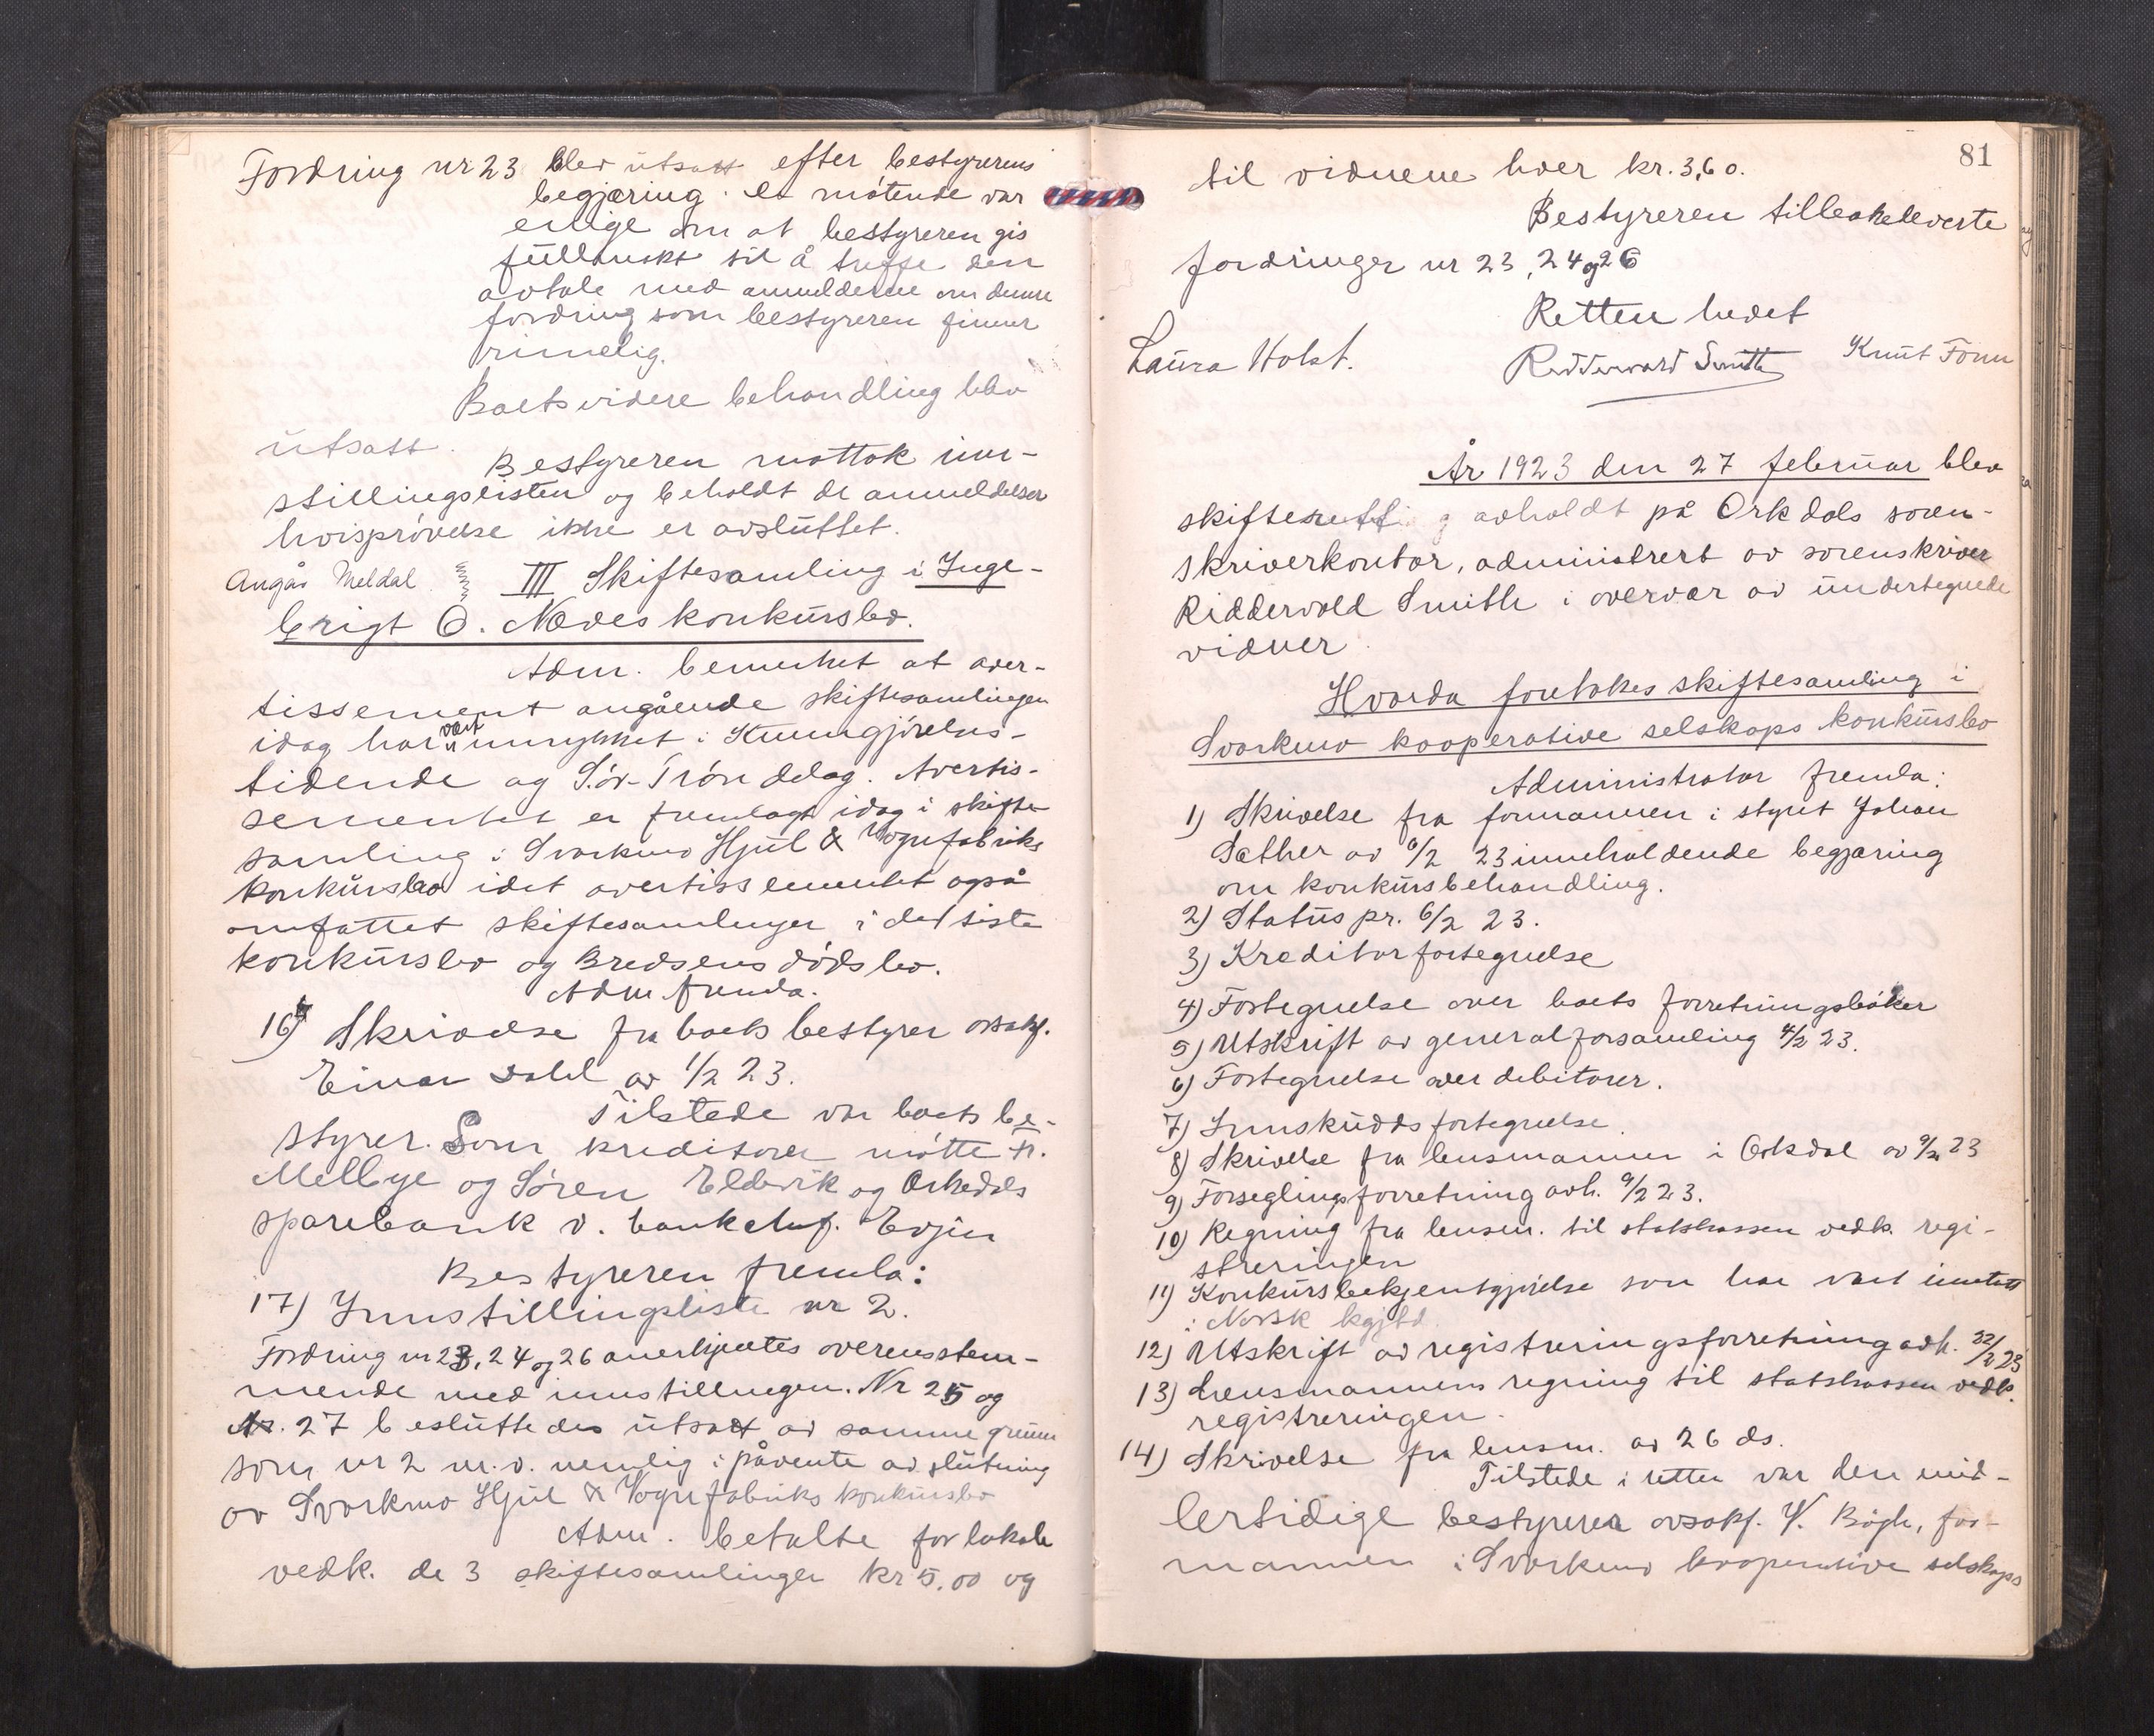 Fordring nr 23 blev utsatt efter bestyrerens
begjæring. De møtende var
enige om at bestyreren gis
fullmakt til å treffe den
avtale med anmelderne om denne
fordring som bestyreren finner
rimelig.
Boets videre behandling blev
utsatt.
Bestyreren mottok inn-
stillingslisten og beholdt de anmeldelser
hvis prøvelse ikke er avsluttet.
Angår Meldal III Skiftesamling i Inge-
brigt O. Næves konkursbo.
Adm. bemerket at aver-
tissement angående skiftesamlingen
idag har vært innrykket i Kunngjørelses-
tidende og Sør-Trøndelag. Avertis-
sementet er fremlagt idag i skifte-
samling i Svorkmo Hjul & Vognfabriks
konkursbo idet avertissementet også
omfattet skiftesamlinger i det siste
konkursbo og Bredsens dødsbo.
Adm. fremla.
16) Skrivelse fra boets bestyrer o.r.sakf.
Einar Dahl av 1/2 23.
Tilstede var boets be-
styrer. Som kreditorer møtte Fr.
Mellbye og Søren Eldevik og Orkedals
sparebank v. bankchef. Evjen
Bestyreren fremla:
17) Innstillingsliste nr 2.
Fordring nr 23, 24 og 26 anerkjentes overensstem-
mende med innstillingen. Nr 25 og
Nr. 27 besluttedes utsatt av samme grunn
som nr 2 m.v. nemlig i påvente av slutning
av Svorkmo Hjul & Vognfabriks konkursbo
Adm. betalte for lokale
vedk. de 3 skiftesamlinger kr 5,00 og
81
til vidnene hver kr. 3,60.
Bestyreren tilbakeleverte
fordringer nr 23, 24 og 26
Retten hevet
Laura Holst. Riddervold Smith Knut Fonn
År 1923 den 27 februar blev
skifterett avholdt på Orkdals soren-
skriverkontor, administrert av sorenskriver
Riddervold Smith i overvær av undertegnede
vidner.
Hvorda foretokes skiftesamling i
Svorkmo kooperative selskaps konkursbo
Administrator fremla:
1) Skrivelse fra formannen i styret Johan
Sæther av 6/2 23 inneholdende begjæring
om konkursbehandling.
2) Status pr. 6/2 23.
3) Kreditorfortegnelse
4) Fortegnelse over boets forretningsbøker
5) Utskrift av generalforsamling 4/2 23.
6) Fortegnelse over debitorer.
7) Innskuddsfortegnelse.
8) Skrivelse fra lensmannen i Orkdal av 9/2 23
9) Forseglingsforretning avh. 9/2 23.
10) Regning fra lensm. til statskassen vedk. regi-
streringen
11) Konkursbekjentgjørelse som har vært inntatt
i Norsk kgjtd.
12) Utskrift av registreringsforretning avh. 22/2 23
13) Lensmannens regning til statskassen vedk.
registreringen.
14) Skrivelse fra lensm. av 26 ds.
Tilstede i retten var den mid-
lertidige bestyrer ovsakf. H. Bøgh, for-
mannen i Svorkmo kooperative selskaps